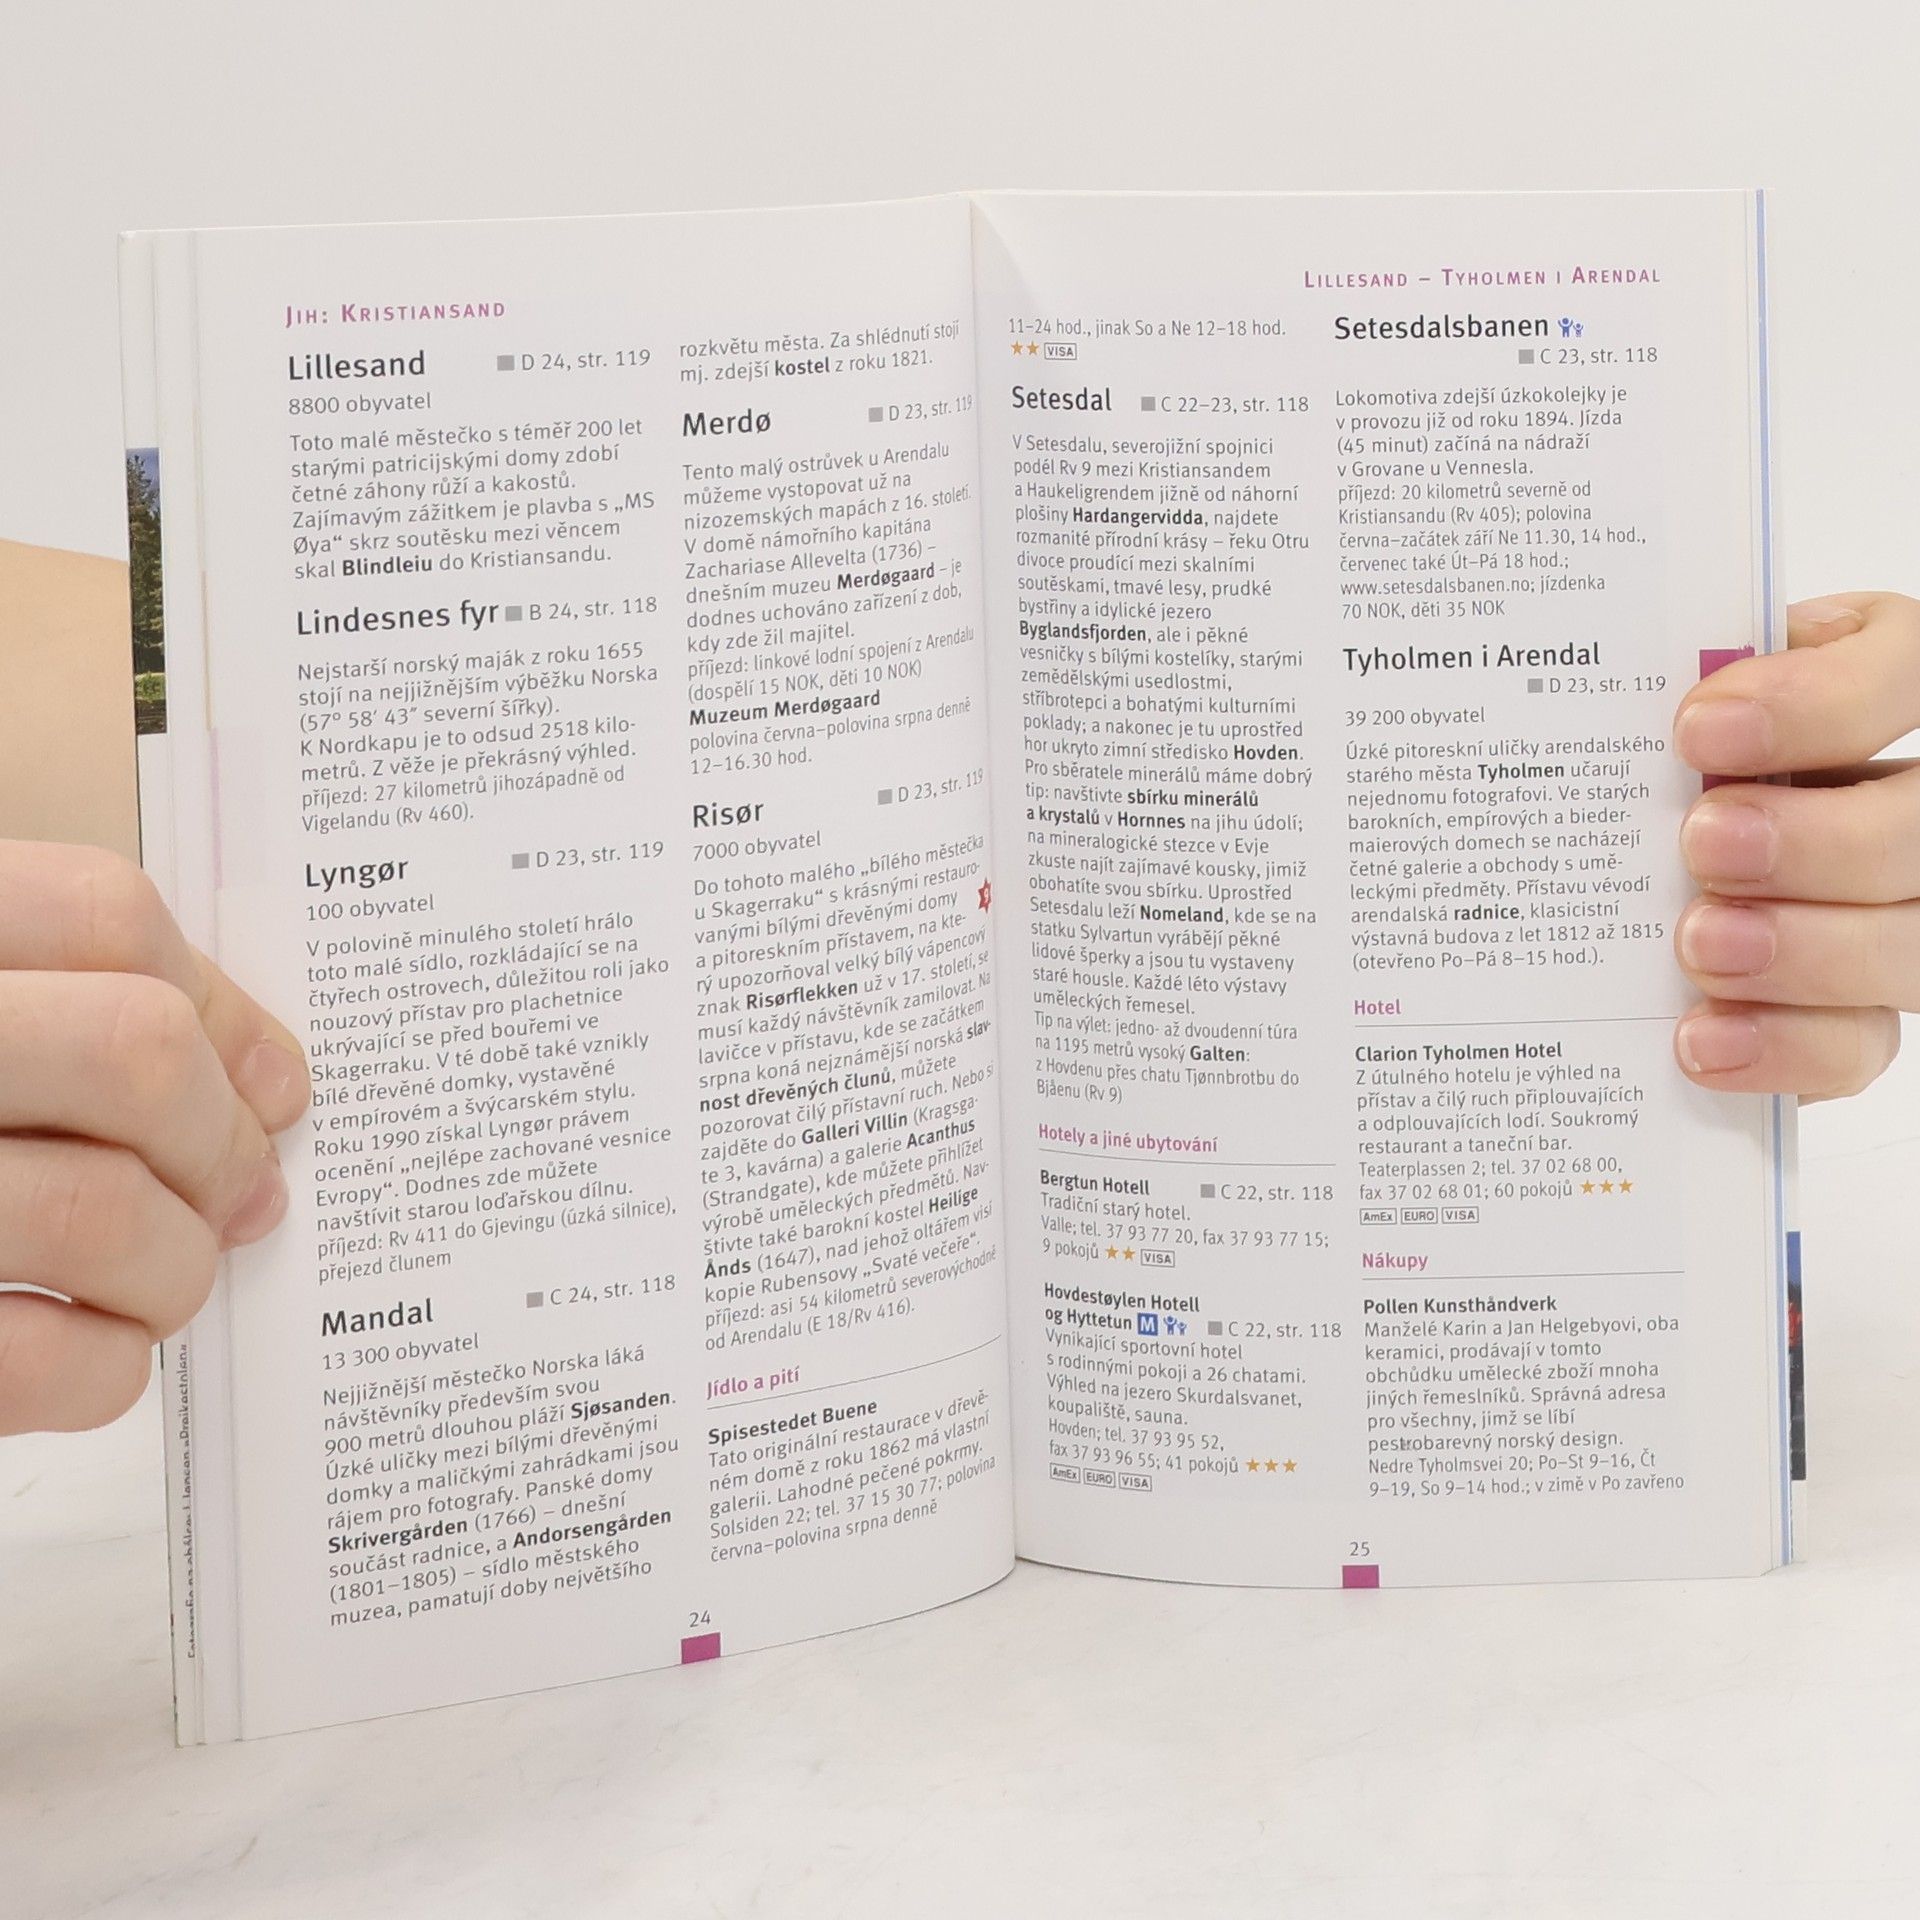 JIH: KRISTIANSAND
Lillesand D 24, str. 119
8800 obyvatel
Toto malé městečko s téměř 200 let
starými patricijskými domy zdobí
četné záhony růží a kakostů.
Zajímavým zážitkem je plavba s „MS
Øya“ skrz soutěsku mezi věncem
skal Blindleiu do Kristiansandu.
Lindesnes fyr B 24, str. 118
Nejstarší norský maják z roku 1655
stojí na nejjižnějším výběžku Norska
(57° 58′ 43″ severní šířky).
K Nordkapu je to odsud 2518 kilo-
metrů. Z věže je překrásný výhled.
příjezd: 27 kilometrů jihozápadně od
Vigelandu (Rv 460).
Lyngør D 23, str. 119
100 obyvatel
V polovině minulého století hrálo
toto malé sídlo, rozkládající se na
čtyřech ostrovech, důležitou roli jako
nouzový přístav pro plachetnice
ukrývající se před bouřemi ve
Skagerraku. V té době také vznikly
bílé dřevěné domky, vystavěné
v empírovém a švýcarském stylu.
Roku 1990 získal Lyngør právem
ocenění „nejlépe zachované vesnice
Evropy“. Dodnes zde můžete
navštívit starou loďařskou dílnu.
příjezd: Rv 411 do Gjevingu (úzká silnice),
přejezd člunem
Mandal C 24, str. 118
13 300 obyvatel
Nejjižnější městečko Norska láká
návštěvníky především svou
900 metrů dlouhou pláží Sjøsanden.
Úzké uličky mezi bílými dřevěnými
domky a maličkými zahrádkami jsou
rájem pro fotografy. Panské domy
Skrivergården (1766) – dnešní
součást radnice, a Andorsengården
(1801–1805) – sídlo městského
muzea, pamatují doby největšího
rozkvětu města. Za shlédnutí stojí
mj. zdejší kostel z roku 1821.
Merdø D 23, str. 119
Tento malý ostrůvek u Arendalu
můžeme vystopovat už na
nizozemských mapách z 16. století.
V domě námořního kapitána
Zachariase Allevelta (1736) –
dnešním muzeu Merdøgaard – je
dodnes uchováno zařízení z dob,
kdy zde žil majitel.
příjezd: linkové lodní spojení z Arendalu
(dospělí 15 NOK, děti 10 NOK)
Muzeum Merdøgaard
polovina června–polovina srpna denně
12–16.30 hod.
Risør D 23, str. 119
7000 obyvatel
Do tohoto malého „bílého městečka
u Skagerraku“ s krásnými restauro-
vanými bílými dřevěnými domy
a pitoreskním přístavem, na kte-
rý upozorňoval velký bílý vápencový
znak Risørflekken už v 17. století, se
musí každý návštěvník zamilovat. Na
lavičce v přístavu, kde se začátkem
srpna koná nejznámější norská slav-
nost dřevěných člunů, můžete
pozorovat čilý přístavní ruch. Nebo si
zajděte do Galleri Villin (Kragsga-
te 3, kavárna) a galerie Acanthus
(Strandgate), kde můžete přihlížet
výrobě uměleckých předmětů. Nav-
štivte také barokní kostel Heilige
Ånds (1647), nad jehož oltářem visí
kopie Rubensovy „Svaté večeře“.
příjezd: asi 54 kilometrů severovýchodně
od Arendalu (E 18/Rv 416).
Jídlo a pití
Spisestedet Buene
Tato originální restaurace v dřevě-
ném domě z roku 1862 má vlastní
galerii. Lahodné pečené pokrmy.
Solsiden 22; tel. 37 15 30 77; polovina
června–polovina srpna denně
24
LILLESAND – TYHOLMEN I ARENDAL
11–24 hod., jinak So a Ne 12–18 hod.
★★ VISA
Setesdal C 22–23, str. 118
V Setesdalu, severojižní spojnici
podél Rv 9 mezi Kristiansandem
a Haukeligrendem jižně od náhorní
plošiny Hardangervidda, najdete
rozmanité přírodní krásy – řeku Otru
divoce proudící mezi skalními
soutěskami, tmavé lesy, prudké
bystřiny a idylické jezero
Byglandsfjorden, ale i pěkné
vesničky s bílými kostelíky, starými
zemědělskými usedlostmi,
stříbrotepci a bohatými kulturními
poklady; a nakonec je tu uprostřed
hor ukryto zimní středisko Hovden.
Pro sběratele minerálů máme dobrý
tip: navštivte sbírku minerálů
a krystalů v Hornnes na jihu údolí;
na mineralogické stezce v Evje
zkuste najít zajímavé kousky, jimiž
obohatíte svou sbírku. Uprostřed
Setesdalu leží Nomeland, kde se na
statku Sylvartun vyrábějí pěkné
lidové šperky a jsou tu vystaveny
staré housle. Každé léto výstavy
uměleckých řemesel.
Tip na výlet: jedno- až dvoudenní túra
na 1195 metrů vysoký Galten:
z Hovdenu přes chatu Tjønnbrotbu do
Bjåenu (Rv 9)
Hotely a jiné ubytování
Bergtun Hotell C 22, str. 118
Tradiční starý hotel.
Valle; tel. 37 93 77 20, fax 37 93 77 15;
9 pokojů ★★ VISA
Hovdestøylen Hotell
og Hyttetun M C 22, str. 118
Vynikající sportovní hotel
s rodinnými pokoji a 26 chatami.
Výhled na jezero Skurdalsvanet,
koupaliště, sauna.
Hovden; tel. 37 93 95 52,
fax 37 93 96 55; 41 pokojů ★★★
AmEx EURO VISA
Setesdalsbanen
C 23, str. 118
Lokomotiva zdejší úzkokolejky je
v provozu již od roku 1894. Jízda
(45 minut) začíná na nádraží
v Grovane u Vennesla.
příjezd: 20 kilometrů severně od
Kristiansandu (Rv 405); polovina
června–začátek září Ne 11.30, 14 hod.,
červenec také Út–Pá 18 hod.;
www.setesdalsbanen.no; jízdenka
70 NOK, děti 35 NOK
Tyholmen i Arendal
D 23, str. 119
39 200 obyvatel
Úzké pitoreskní uličky arendalského
starého města Tyholmen učarují
nejednomu fotografovi. Ve starých
barokních, empírových a bieder-
maierových domech se nacházejí
četné galerie a obchody s umě-
leckými předměty. Přístavu vévodí
arendalská radnice, klasicistní
výstavná budova z let 1812 až 1815
(otevřeno Po–Pá 8–15 hod.).
Hotel
Clarion Tyholmen Hotel
Z útulného hotelu je výhled na
přístav a čilý ruch připlouvajících
a odplouvajících lodí. Soukromý
restaurant a taneční bar.
Teaterplassen 2; tel. 37 02 68 00,
fax 37 02 68 01; 60 pokojů ★★★
AmEx EURO VISA
Nákupy
Pollen Kunsthåndverk
Manželé Karin a Jan Helgebyovi, oba
keramici, prodávají v tomto
obchůdku umělecké zboží mnoha
jiných řemeslníků. Správná adresa
pro všechny, jimž se líbí
pestrobarevný norský design.
Nedre Tyholmsvei 20; Po–St 9–16, Čt
9–19, So 9–14 hod.; v zimě v Po zavřeno
25